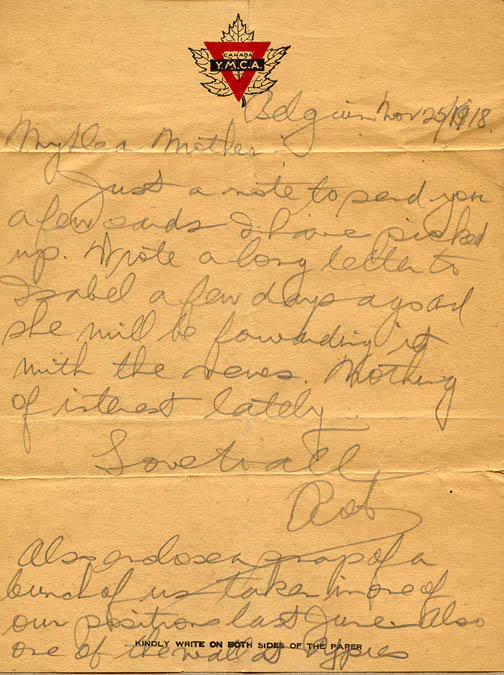 CANADA
Y.M.C.A.
Belgium Nov 25/1918
My Dea Mother
Just a note to send you
a few cards I have picked
up. Wrote a long letter to
Isabel a few days ago and
she will be forwarding it
with the news. Nothing
of interest lately.
Love to all
Rob
Also enclose a snap of a
bunch of us taken in one of
our positions last June. Also
KINDLY WRITE ON BOTH SIDES OF THE PAPER
one of the wall at Yypres